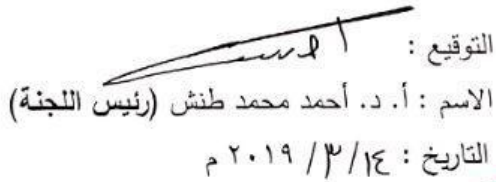 التوقيع :
الاسم : أ. د. أحمد محمد طنش (رئيس اللجنة)
التاريخ : ١٤/٣/٢٠١٩ م